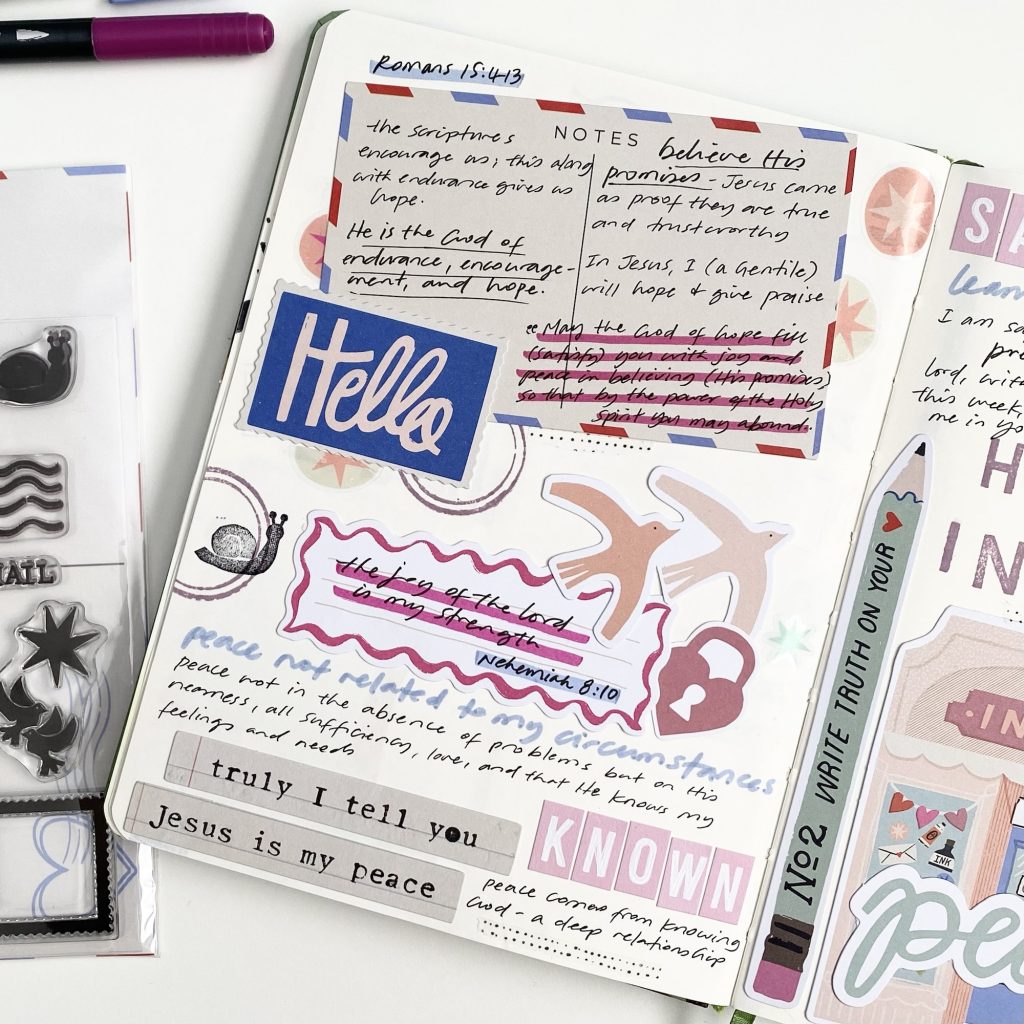 Romans 15:4-13
NOTES
the scriptures
encourage us; this along
with endurance gives us
hope.
He is the God of
endurance, encourage-
ment, and hope.
believe His
promises - Jesus came
as proof they are true
and trustworthy
In Jesus, I (a Gentile)
will hope & give praise
"May the God of hope fill
(satisfy) you with joy and
peace in believing (His promises)
so that by the power of the Holy
spirit you may abound."
Hello
the joy of the lord
is my strength
Nehemiah 8:10
peace not related to my circumstances
peace not in the absence of problems but on His
nearness, all sufficiency, love, and that He knows my
feelings and needs
truly I tell you
Jesus is my peace
KNOWN
peace comes from knowing
God - a deep relationship
No2 WRITE TRUTH ON YOUR
SA
learn
I am sa
pr
lord, with
this week,
me in yo
H
IN
IN
INK
pea
MAIL